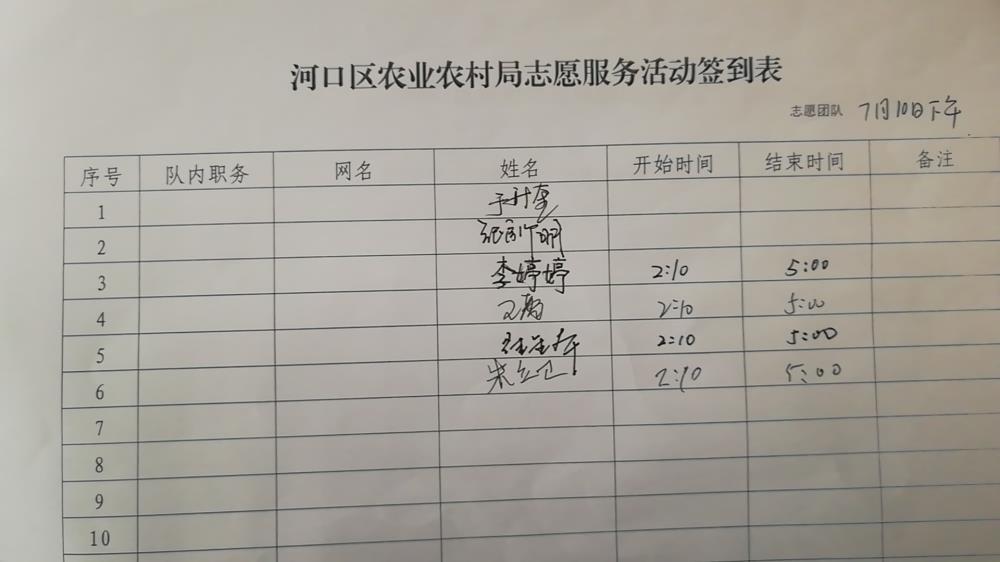 河口区农业农村局志愿服务活动签到表
志愿团队 7月10日下午
序号 队内职务 网名 姓名 开始时间 结束时间 备注
1
2
3 李婷婷 2:10 5:00
4 2:10 5:00
5 2:10 5:00
6 朱立卫 2:10 5:00
7
8
9
10